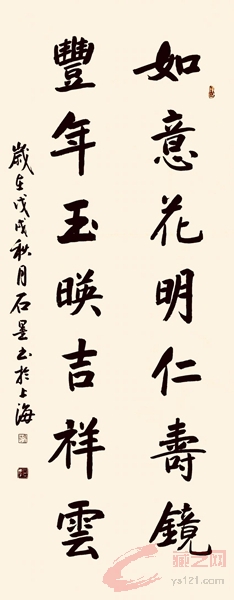 如意花明仁壽鏡
豐年玉暎吉祥雲
歲在戊戌秋月石墨書於上海
藏之网
ys121.com